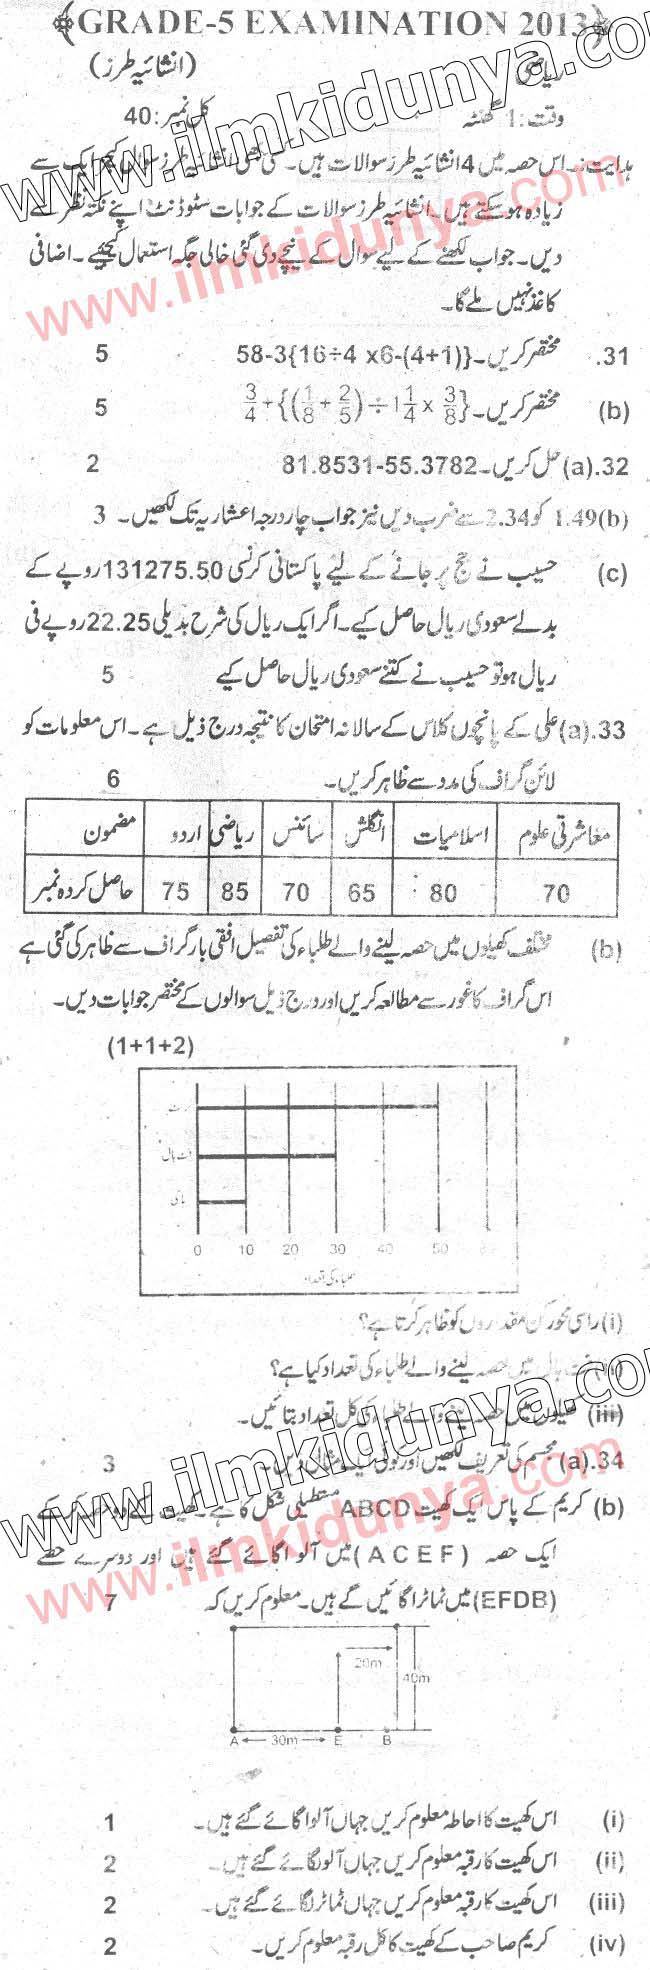 GRADE-5 EXAMINATION 2013
ریاضی (انشائیہ طرز)
وقت: 1 گھنٹہ کل نمبر: 40
www.ilmkidunya.com
ہدایت:۔ اس حصہ میں 4 انشائیہ طرز سوالات ہیں۔ کسی بھی انشائیہ طرز سوال کیلئے ایک سے
زیادہ ہوسکتے ہیں۔ انشائیہ طرز سوالات کے جوابات سٹوڈنٹ اپنے نکتہ نظر سے
www.ilmkidunya.com
دیں۔ جواب لکھنے کے لیے سوال کے نیچے دی گئی خالی جگہ استعمال کیجئیے۔ اضافی
کاغذ نہیں ملے گا۔
31. مختصر کریں۔ 58-3{16÷4 x6-(4+1)} 5
(b) مختصر کریں۔ 3/4 ÷{(1/8 + 2/5) ÷ 1 1/4 x 3/8} 5
32.(a) حل کریں۔ 81.8531-55.3782 2
(b) 1.49 کو 2.34 سے ضرب دیں نیز جواب چار درجہ اعشاریہ تک لکھیں۔ 3
(c) حسیب نے حج پر جانے کے لیئے پاکستانی کرنسی 131275.50 روپے کے
بدلے سعودی ریال حاصل کیے۔ اگر ایک ریال کی شرح بدیلی 22.25 روپے فی
ریال ہو تو حسیب نے کتنے سعودی ریال حاصل کیے 5
33.(a) علی کے پانچوں کلاس کے سالانہ امتحان کا نتیجہ درج ذیل ہے۔ اس معلومات کو
لائن گراف کی مدد سے ظاہر کریں۔ 6
مضمون اردو ریاضی سائنس انگلش اسلامیات معاشرتی علوم
حاصل کردہ نمبر 75 85 70 65 80 70
(b) مختلف کھیلوں میں حصہ لینے والے طلباء کی تفصیل افقی بار گراف سے ظاہر کی گئی ہے
اس گراف کا غور سے مطالعہ کریں اور درج ذیل سوالوں کے مختصر جوابات دیں۔
(1+1+2)
فٹ بال
ہاکی
0 10 20 30 40 50 60
طلباء کی تعداد
(i) راسی محور کن مقداروں کو ظاہر کرتا ہے؟
(ii) فٹ بال میں حصہ لینے والے طلباء کی تعداد کیا ہے؟
(iii) کھیلوں میں حصہ لینے والے طلباء کی کل تعداد بتائیں۔
www.ilmkidunya.com
34.(a) مجسم کی تعریف لکھیں اور کوئی ایک مثال دیں۔ 3
(b) کریم کے پاس ایک کھیت ABCD مستطیلی شکل کا ہے۔ کھیت کے
www.ilmkidunya.com
ایک حصہ (ACEF) میں آلو اگائے گئے ہیں اور دوسرے حصے
(EFDB) میں ٹماٹر اگائیں گے ہیں۔ معلوم کریں کہ 7
20m
40m
A 30m E B
(i) اس کھیت کا احاطہ معلوم کریں جہاں آلو اگائے گئے ہیں۔ 1
(ii) اس کھیت کا رقبہ معلوم کریں جہاں آلو لگائے گئے ہیں۔ 2
(iii) اس کھیت کا رقبہ معلوم کریں جہاں ٹماٹر لگائے گئے ہیں۔ 2
(iv) کریم صاحب کے کھیت کا کل رقبہ معلوم کریں۔ 2